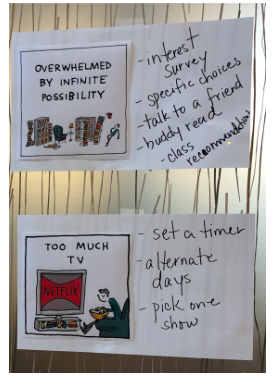 OVERWHELMED
BY INFINITE
POSSIBILITY
- interest
survey
- specific choices
- talk to a friend
- buddy read
- class
recommendations
TOO MUCH
TV
NETFLIX
- set a timer
- alternate
days
- pick one
show